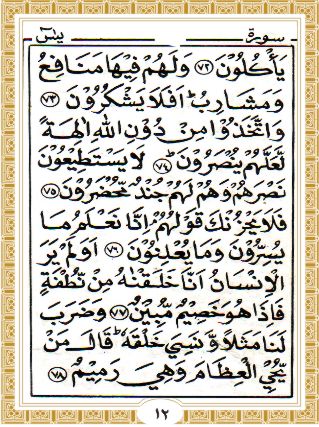 سورة يٰسٓ
يَأْكُلُوْنَ ﴿٧٢﴾ وَلَهُمْ فِيْهَا مَنَافِعُ
وَمَشَارِبُ ؕ اَفَلَا يَشْكُرُوْنَ ﴿٧٣﴾
وَاتَّخَذُوْا مِنْ دُوْنِ اللّٰهِ اٰلِهَةً
لَّعَلَّهُمْ يُنْصَرُوْنَ ﴿٧٤﴾ لَا يَسْتَطِيْعُوْنَ
نَصْرَهُمْ وَهُمْ لَهُمْ جُنْدٌ مُّحْضَرُوْنَ ﴿٧٥﴾
فَلَا يَحْزُنْكَ قَوْلُهُمْ اِنَّا نَعْلَمُ مَا
يُسِرُّوْنَ وَمَا يُعْلِنُوْنَ ﴿٧٦﴾ اَوَلَمْ يَرَ
الْاِنْسَانُ اَنَّا خَلَقْنٰهُ مِنْ نُّطْفَةٍ
فَاِذَا هُوَ خَصِيْمٌ مُّبِيْنٌ ﴿٧٧﴾ وَضَرَبَ
لَنَا مَثَلًا وَّنَسِيَ خَلْقَهٗ ؕ قَالَ مَنْ
يُّحْيِ الْعِظَامَ وَهِيَ رَمِيْمٌ ﴿٧٨﴾
١٢